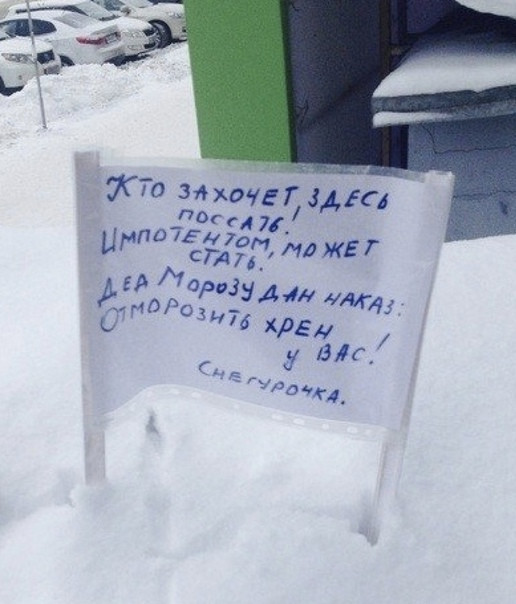 Кто захочет, здесь
поссать!
Импотентом, может
стать.
Дед Морозу дан наказ:
Отморозить хрен
у вас!
Снегурочка.